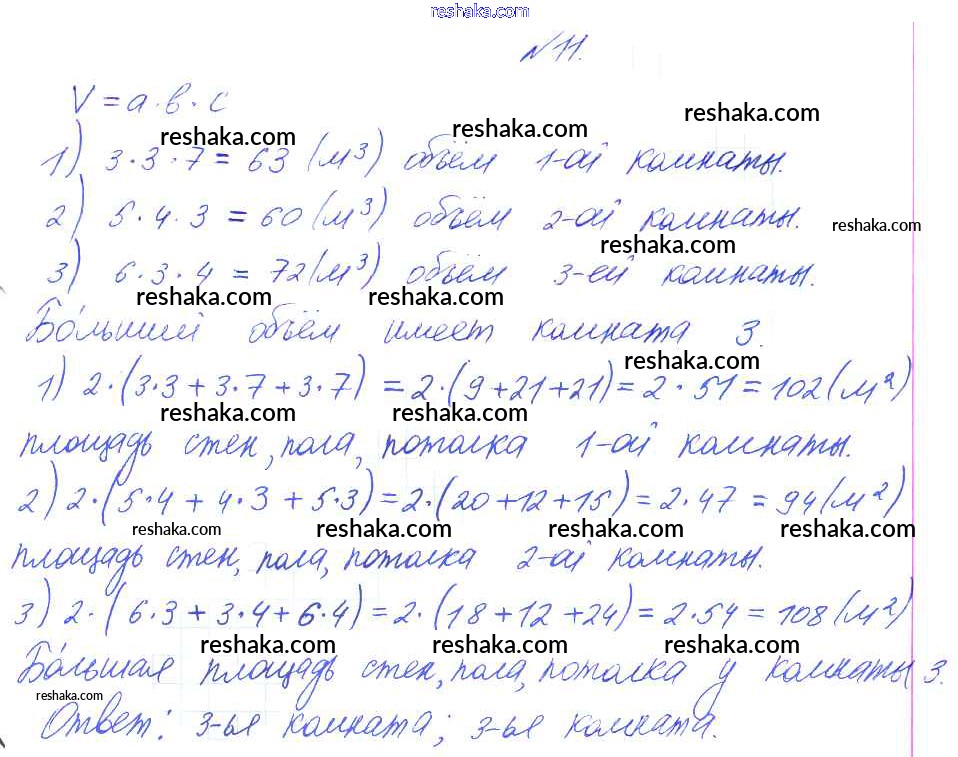 reshaka.com
№11.
V = a · b · c
reshaka.com reshaka.com reshaka.com
1) 3·3·7 = 63 (м³) объём 1-ой комнаты.
2) 5·4·3 = 60 (м³) объём 2-ой комнаты.
reshaka.com reshaka.com
3) 6·3·4 = 72 (м³) объём 3-ей комнаты.
reshaka.com reshaka.com
Бо́льший объём имеет комната 3.
reshaka.com
1) 2·(3·3+3·7+3·7) = 2·(9+21+21) = 2·51 = 102 (м²)
reshaka.com reshaka.com
площадь стен, пола, потолка 1-ой комнаты.
2) 2·(5·4+4·3+5·3) = 2·(20+12+15) = 2·47 = 94 (м²)
reshaka.com reshaka.com reshaka.com reshaka.com
площадь стен, пола, потолка 2-ой комнаты.
3) 2·(6·3+3·4+6·4) = 2·(18+12+24) = 2·54 = 108 (м²)
reshaka.com reshaka.com reshaka.com
Бо́льшая площадь стен, пола, потолка у комнаты 3.
reshaka.com
Ответ: 3-ья комната; 3-ья комната.